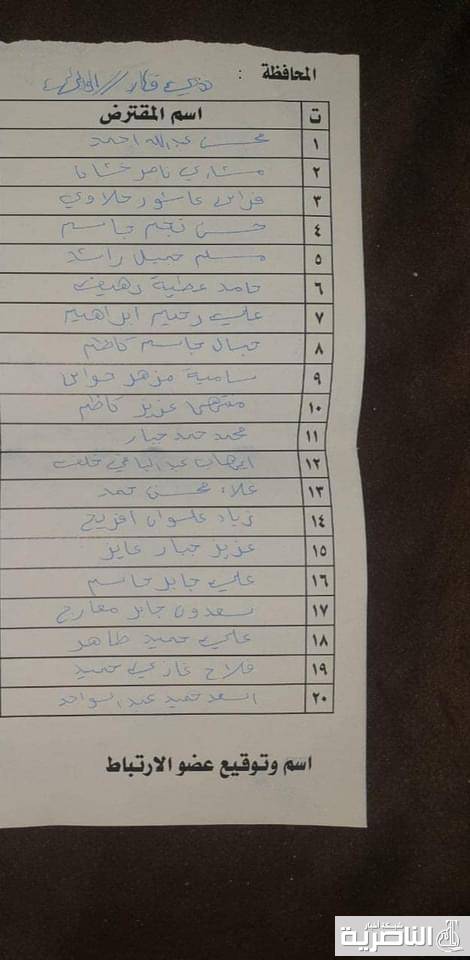 المحافظة : ذي قار /
ت اسم المقترض
١ محسن عبدالله احمد
٢ مشاري ناصر
٣ فراس عاشور حلاوي
٤ حسن نجم جاسم
٥ مسلم جميل راشد
٦ حامد عطية دهيف
٧ علي رحيم ابراهيم
٨ جاسم كاظم
٩ سامية مزهر حواس
١٠ منتهى عزيز كاظم
١١ محمد حمد جبار
١٢ عبد خلف
١٣ علاء محسن حمد
١٤ زياد علوان افريح
١٥ عزيز جبار عايز
١٦ علي جابر جاسم
١٧ سعدون جابر معارج
١٨ علي حميد طاهر
١٩ فلاح غازي حميد
٢٠ اسعد حميد عبد الواحد
اسم وتوقيع عضو الارتباط
شبكة أخبار
الناصرية